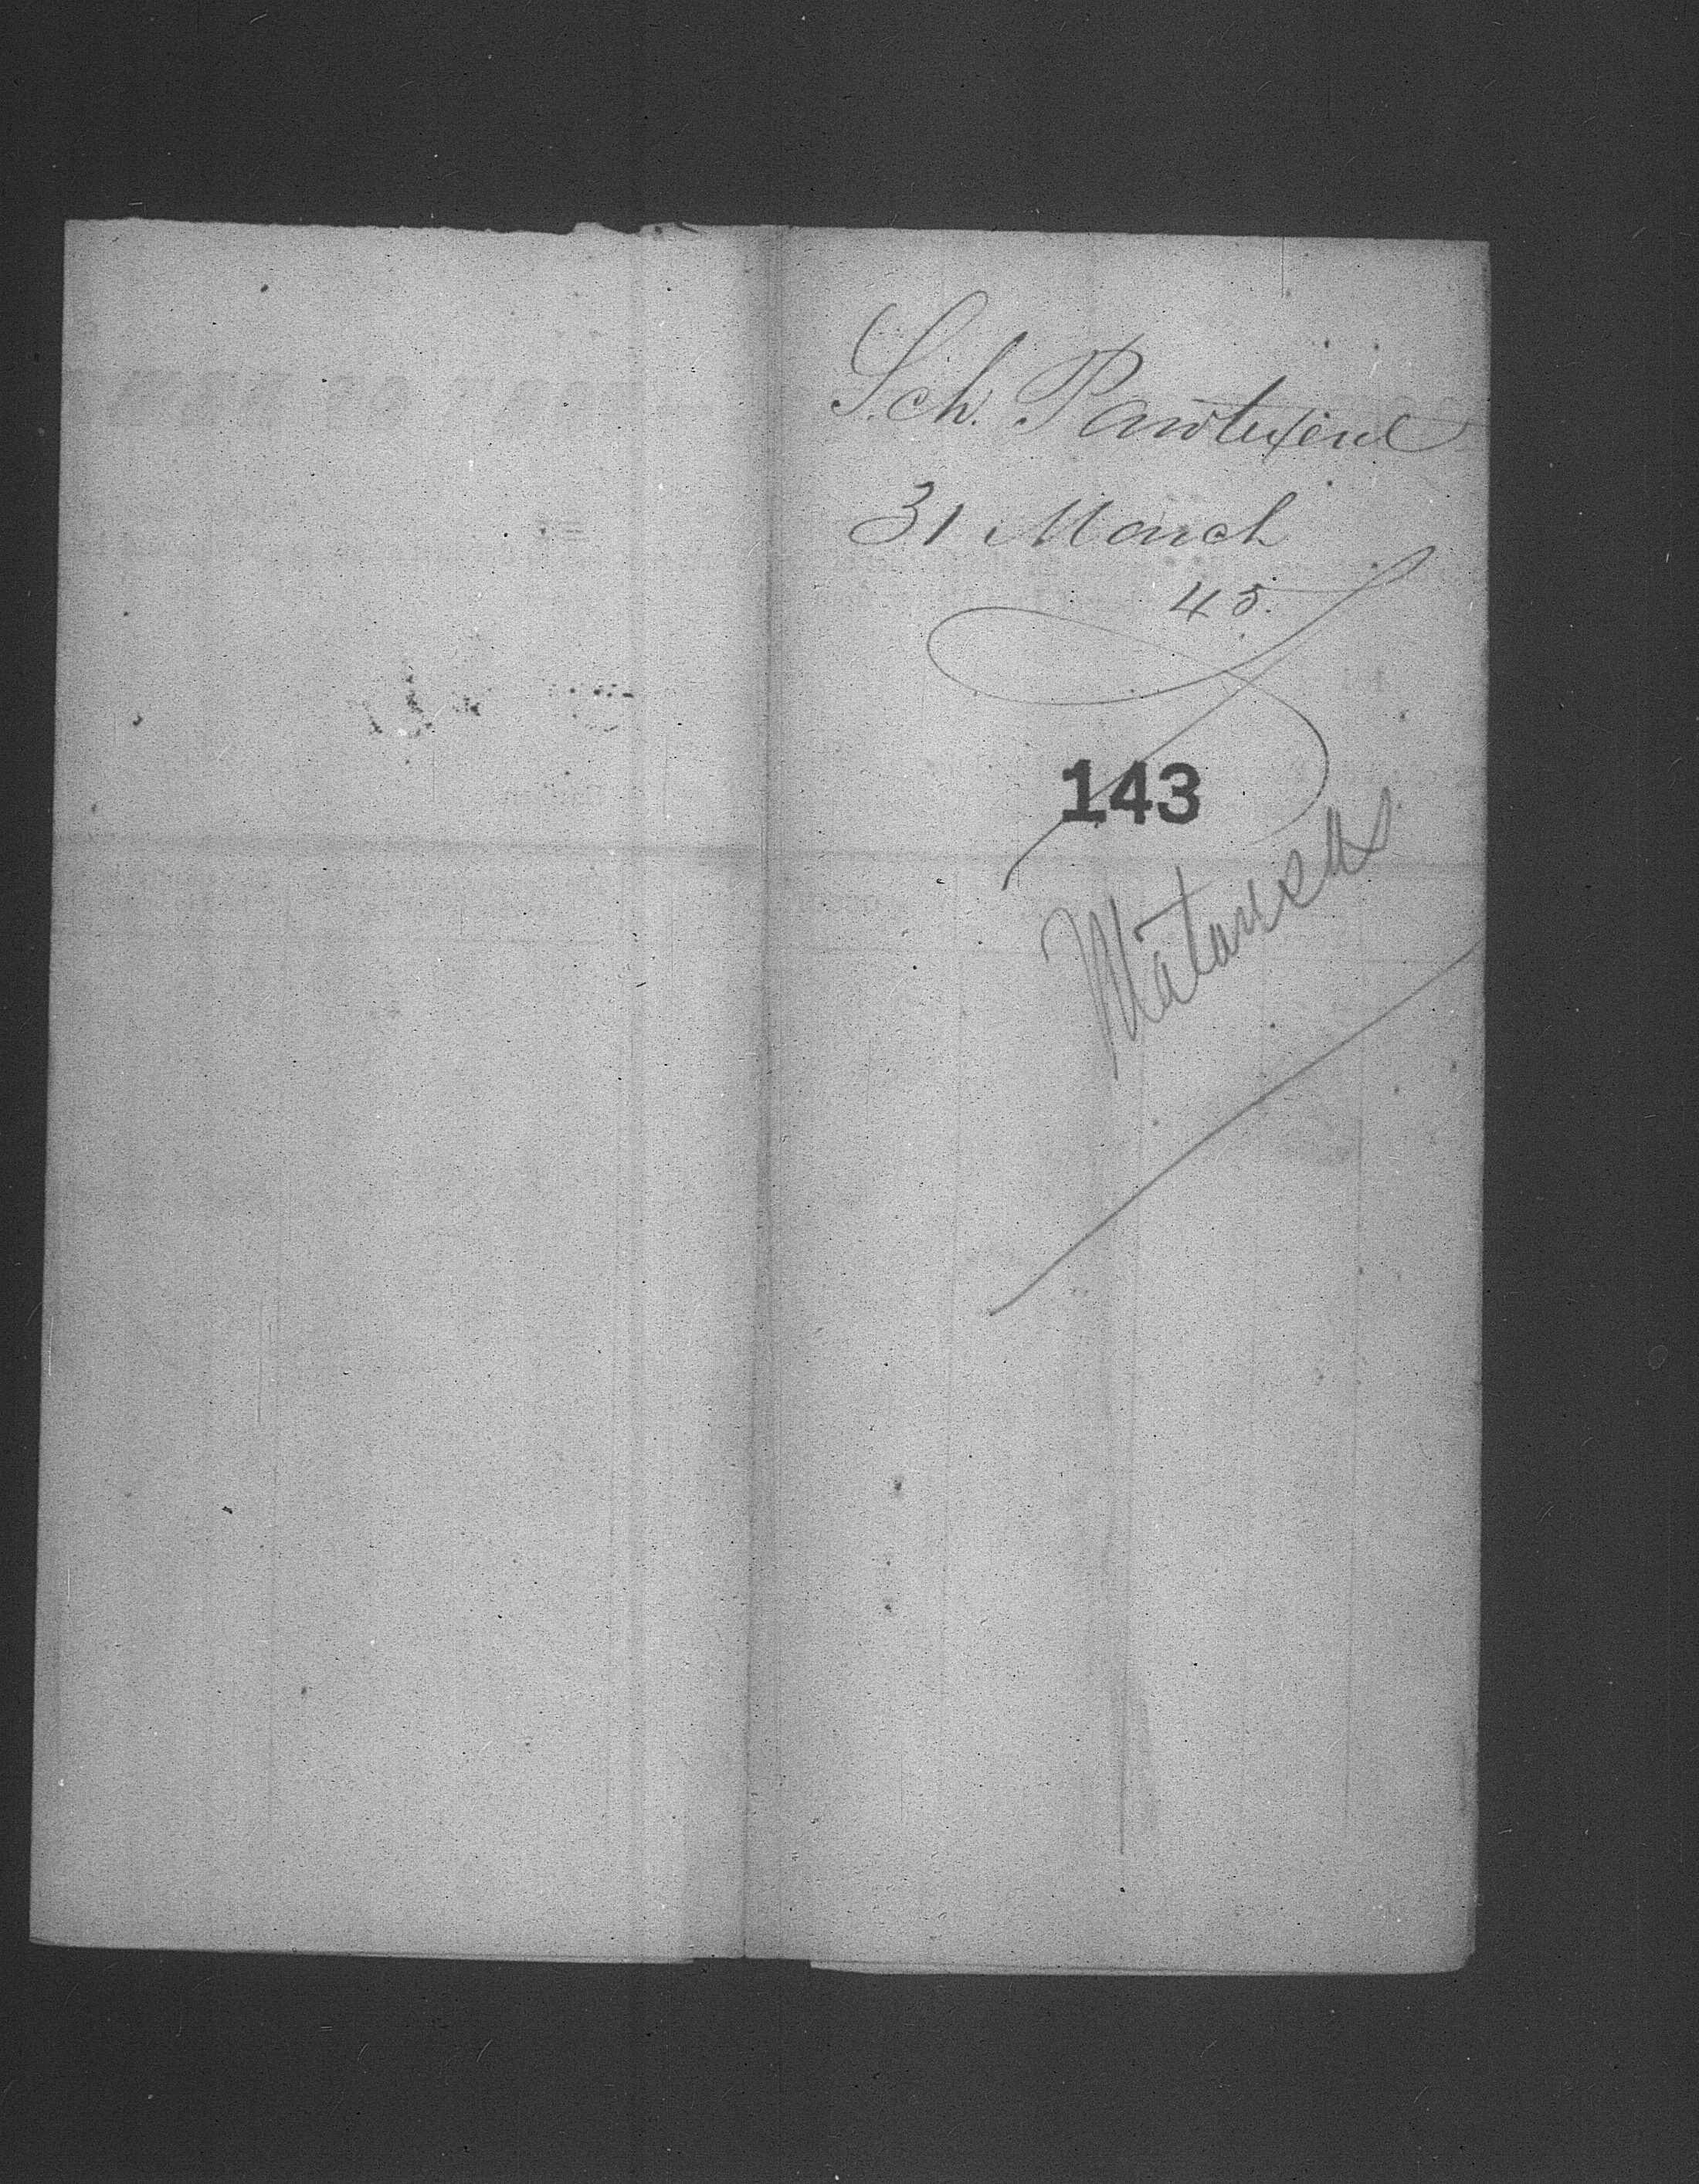 Sch. Pawtuxent
31 March
45.
143
Matanzas